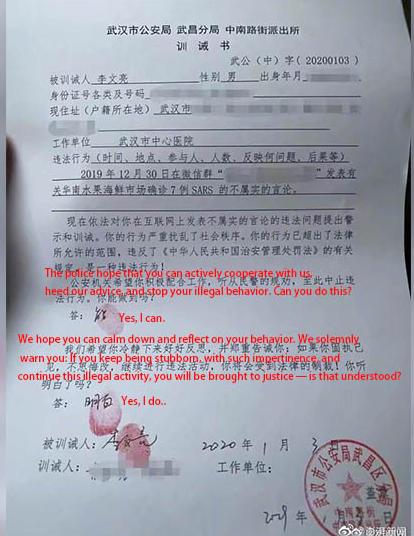 武汉市公安局 武昌分局 中南路街派出所
训诫书
武公（中）字（20200103）
被训诫人 李文亮 性别 男 出身年月
身份证号各类及号码
现住址（户籍所在地） 武汉市
工作单位 武汉市中心医院
违法行为（时间、地点、参与人、人数、反映何问题、后果等）
2019年12月30日在微信群“ ”发表有
关华南水果海鲜市场确诊7例SARS的不属实的言论。
现在依法对你在互联网上发表不属实的言论的违法问题提出警
示和训诫。你的行为严重扰乱了社会秩序。你的行为已超出了法律
所允许的范围，违反了《中华人民共和国治安管理处罚法》的有关
规定，是一种违法行为！
The police hope that you can actively cooperate with us,
公安机关希望你积极配合工作，听从民警的规劝，至此中止违
heed our advice, and stop your illegal behavior. Can you do this?
法行为。你能做到吗？
答：能
Yes, I can.
We hope you can calm down and reflect on your behavior. We solemnly
我们希望你冷静下来好好反思，并郑重告诫你：如果你固执己
warn you: If you keep being stubborn, with such impertinence, and
见，不思悔改，继续进行违法活动，你将会受到法律的制裁！你听
continue this illegal activity, you will be brought to justice — is that understood?
明白了吗？
答：明白
Yes, I do..
被训诫人：李文亮 2020年1月3日
训诫人： 工作单位：
武汉市公安局武昌区分局
盖章
年 月 日
澎湃新闻